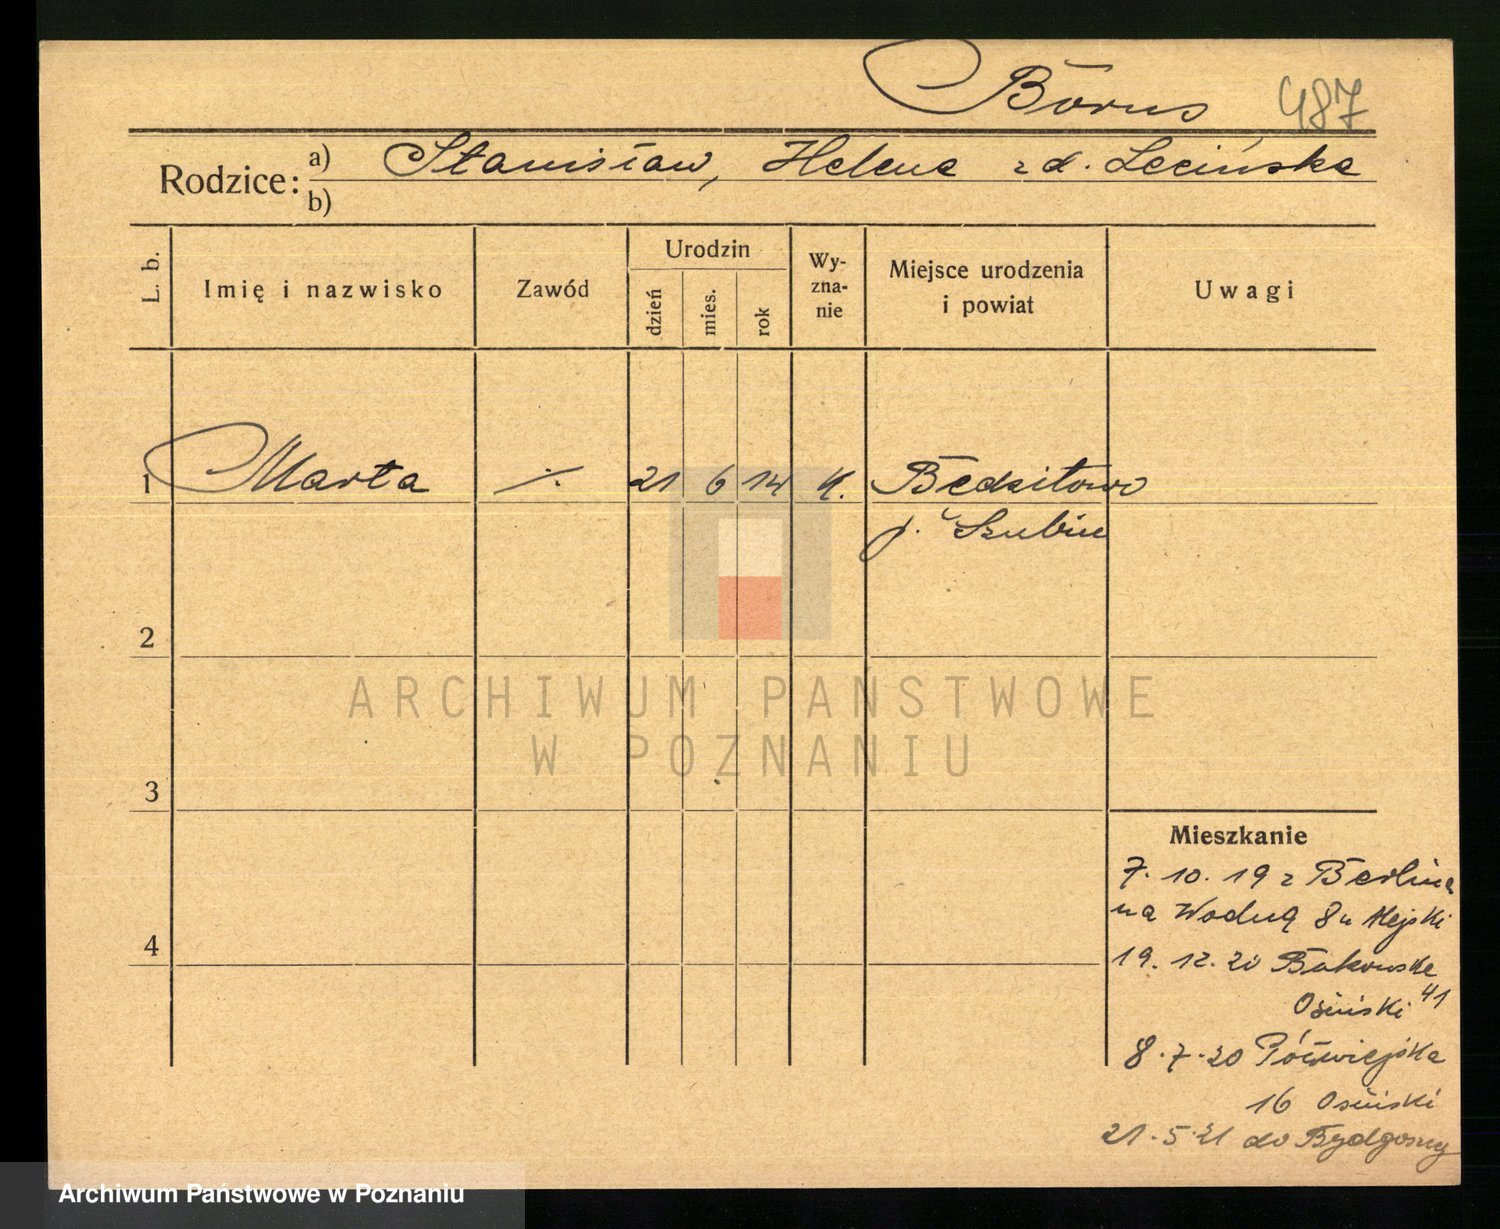 Borus 487
Rodzice: a) Stanisław, Helena zd. Lecińska
b)
L. b.
Imię i nazwisko
Zawód
Urodzin
dzień
mies.
rok
Wy-
zna-
nie
Miejsce urodzenia
i powiat
Uwagi
1 Marta ./. 21 6 14 k. Będzitowo
p. Szubin
2
ARCHIWUM PAŃSTWOWE
W POZNANIU
3
Mieszkanie
7. 10. 19 z Berlina
na Wodną 8
4
19. 12. 20 Bukowska
Osiński 41
8.7.20 Półwiejska
16 Osiński
21.5.21 do Bydgoszczy
Archiwum Państwowe w Poznaniu